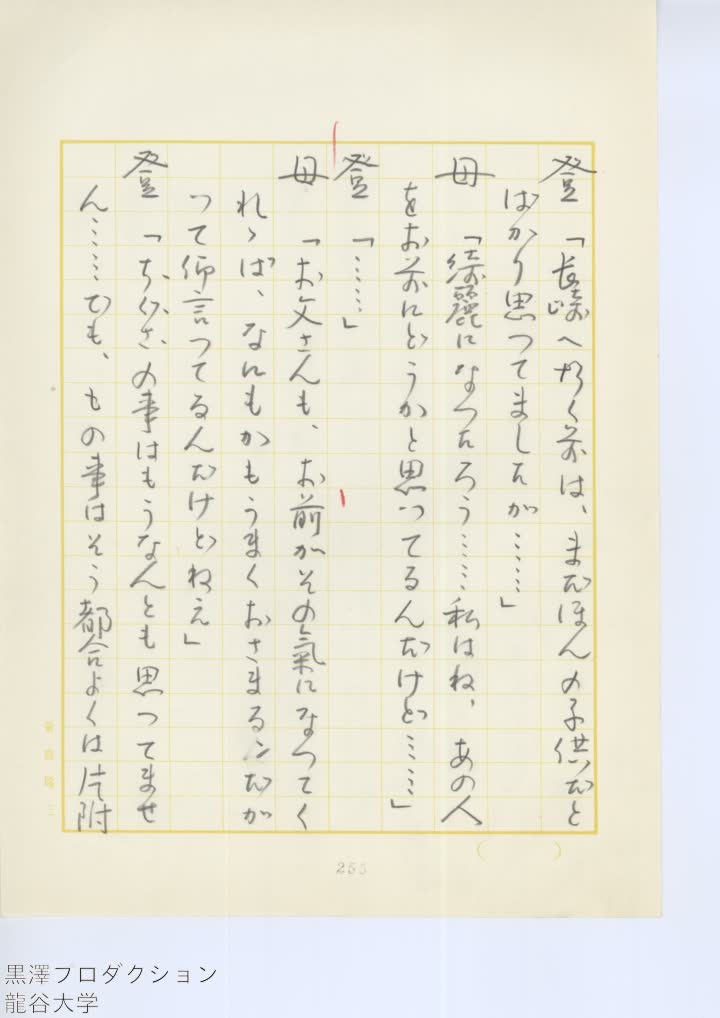 登「長崎へ行く前は、まだほんの子供だと
ばかり思つてましたが……」
母「綺麗になつたろう……私はね、あの人
をお前にどうかと思つてるんだけど……」
登「……」
母「お父さんも、お前がその氣になつてく
れゝば、なにもかもうまくおさまるンだが
つて仰言つてるんだけどねえ」
登「ちぐさの事はもうなんとも思つてませ
ん……でも、もの事はそう都合よくは片附
255
黒澤プロダクション
龍谷大学